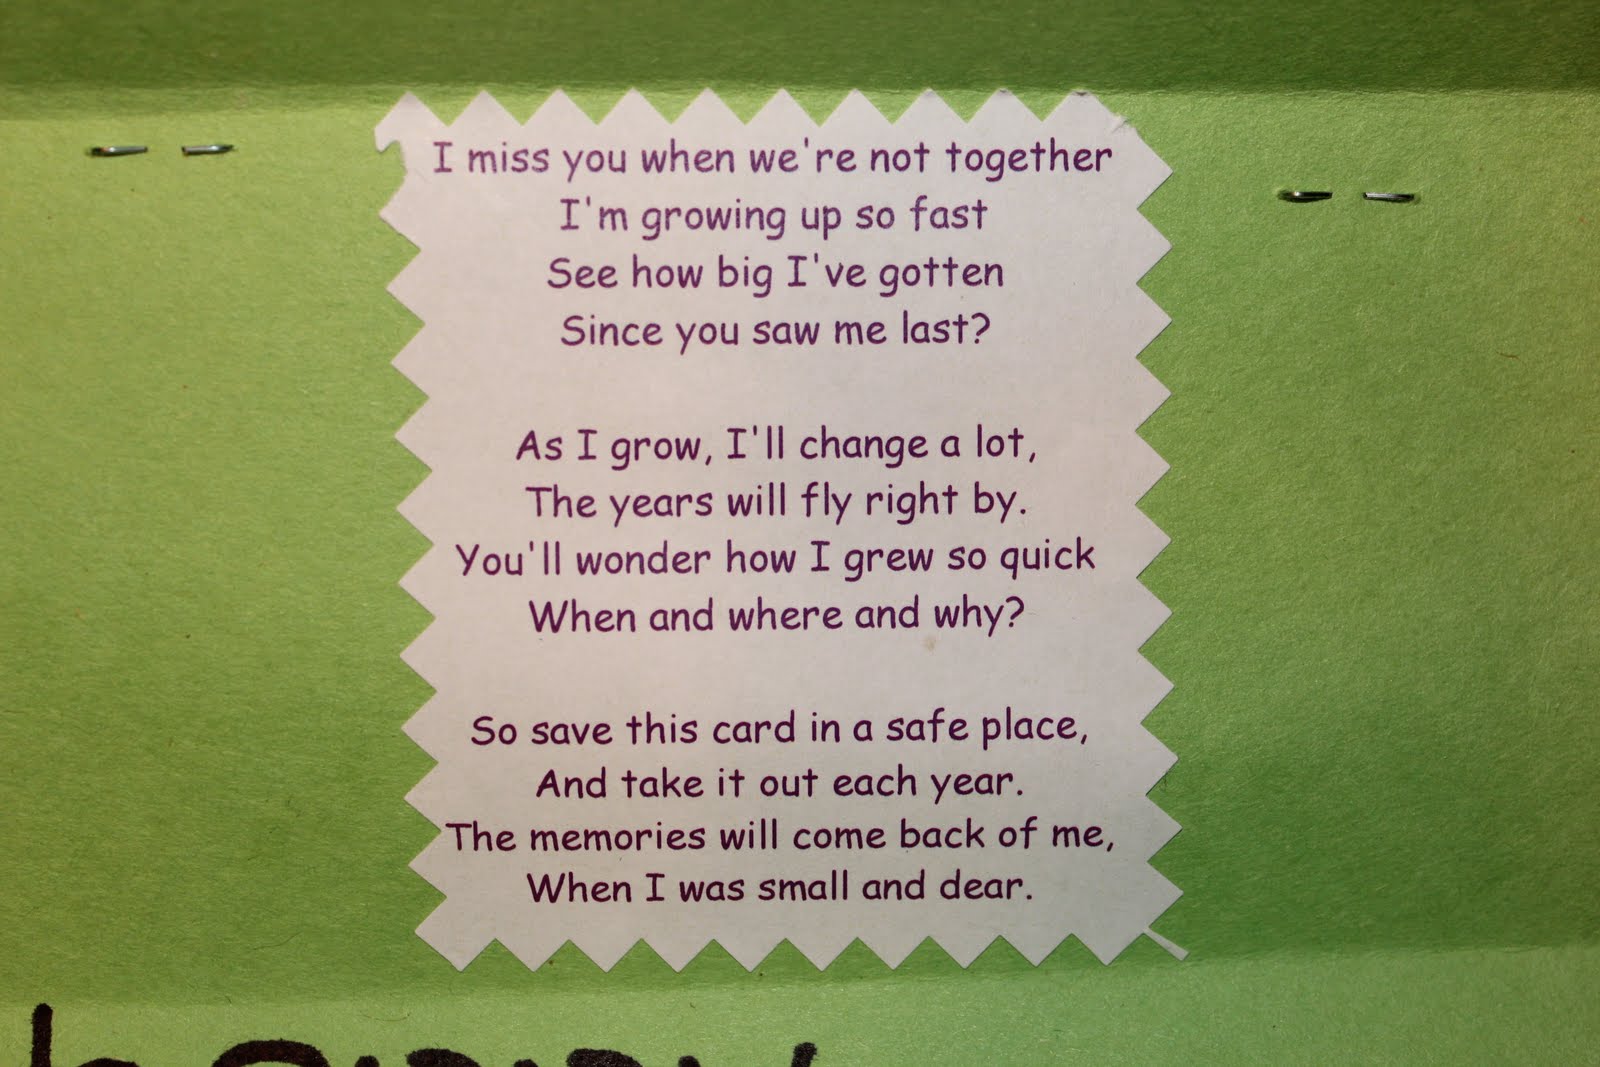 I miss you when we're not together
I'm growing up so fast
See how big I've gotten
Since you saw me last?
As I grow, I'll change a lot,
The years will fly right by.
You'll wonder how I grew so quick
When and where and why?
So save this card in a safe place,
And take it out each year.
The memories will come back of me,
When I was small and dear.